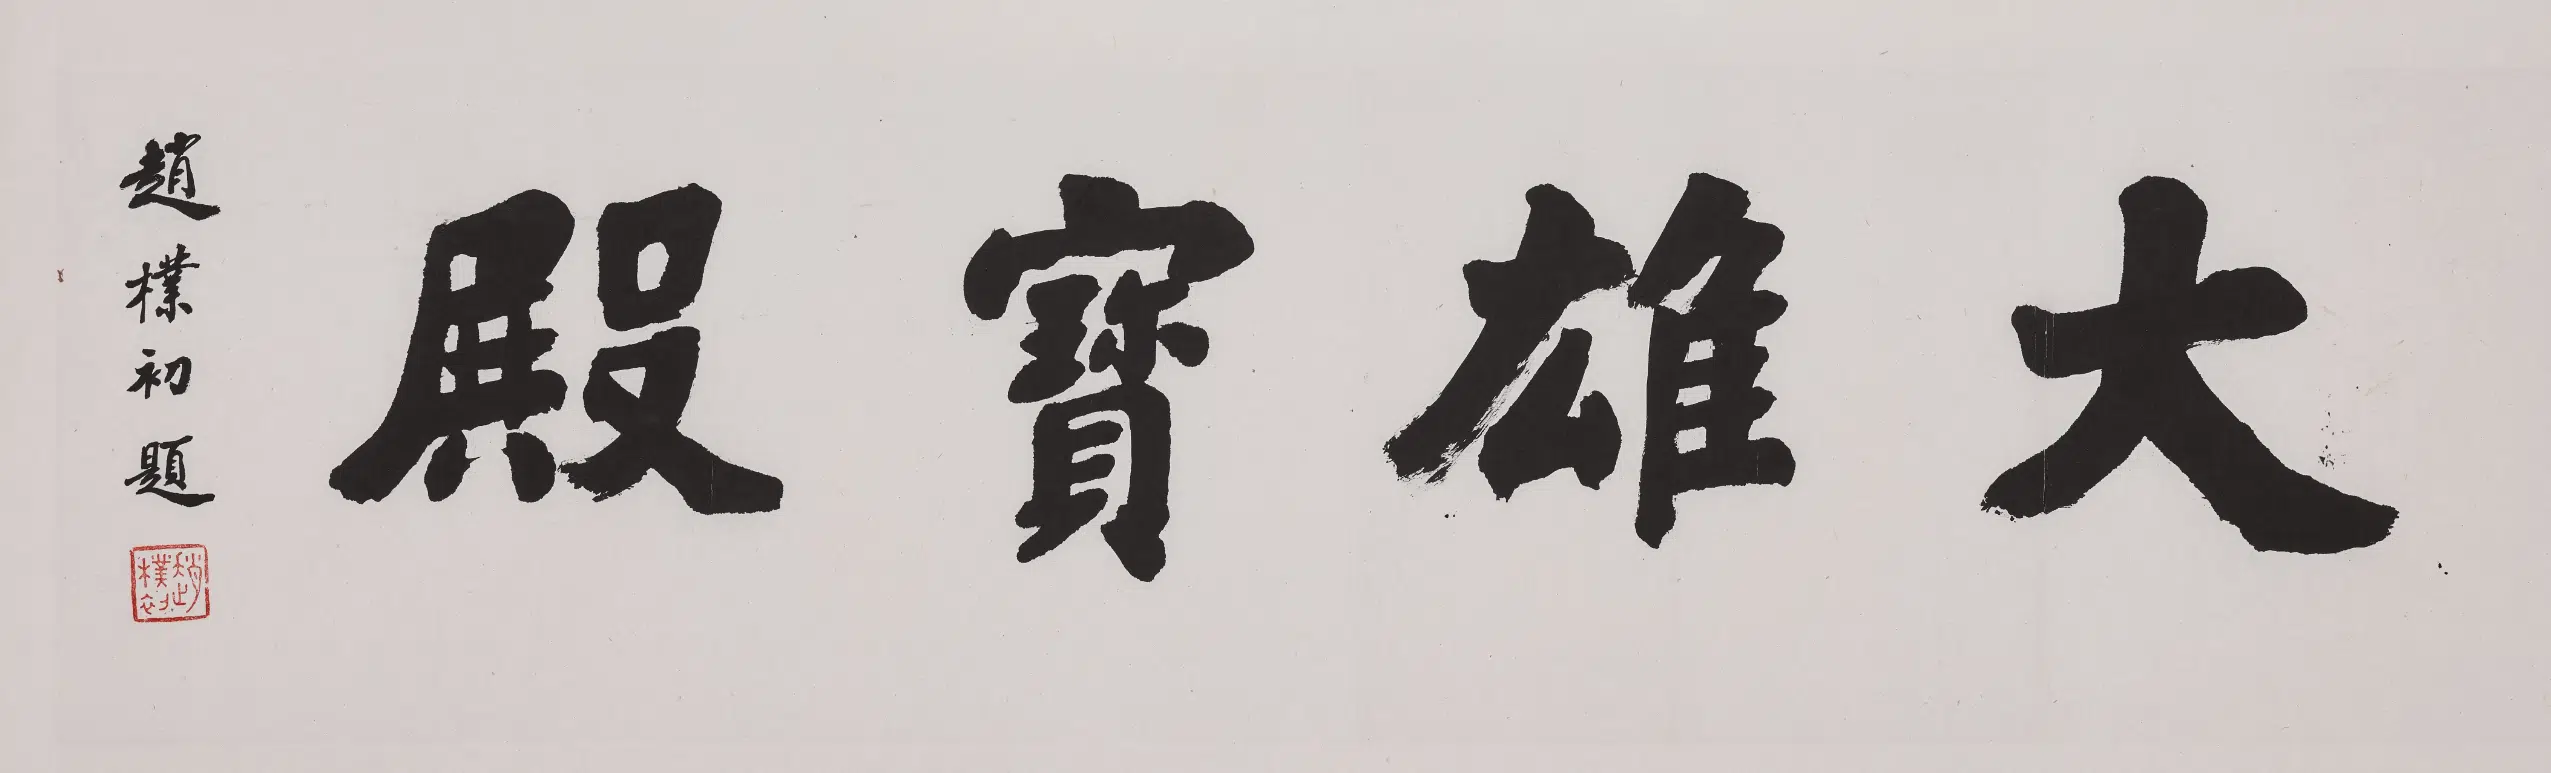 大雄寶殿
趙樸初題
趙樸初